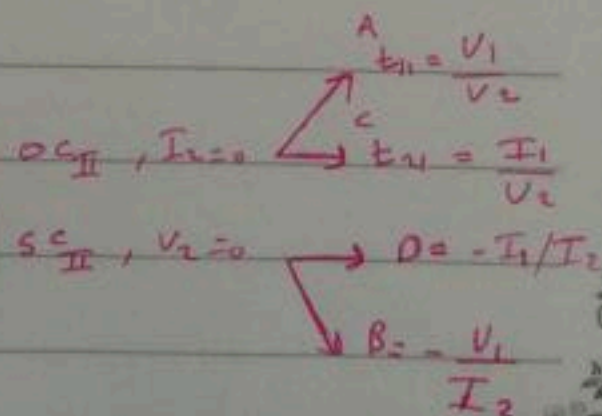 A
t₁₁ = V₁/V₂
OC_II , I₂=0
C
t₂₁ = I₁/V₂
SC_II , V₂=0
D= -I₁/I₂
B= - V₁/I₂